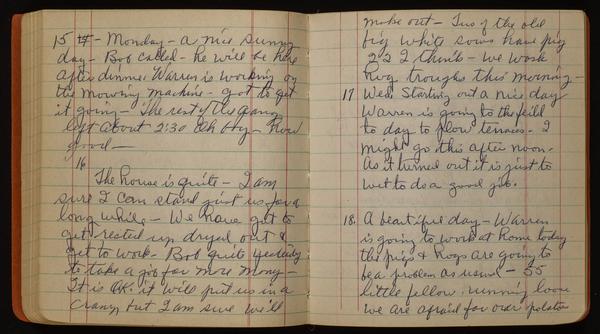 15 - Monday - a nice sunny
day - Bob called - he will be here
after dinner Warren is working on
the mowing machine - got to get
it going - The rest of the gang
left about 2:30 Oh boy - How
good -
16
The house is quite - I am
sure I can stand just us for a
long while - We have got to
get rested up dryed out &
get to work - Bob quite yesterday
to take a job for more money -
It is OK. it will put us in a
cramp but I am sure we'll
make out - Two of the old
big white sows have pig
22 I think - we work
hog troughs this morning -
17 Wed. Starting out a nice day
Warren is going to the feild
to day to plow terraces - I
might go this after noon.
As it turned out it is just to
wet to do a good job.
18. A beautiful day - Warren
is going to work at home today
the pigs & hogs are going to
be a problem as usual - 55
little fellow running loose
we are afraid for our potatoe